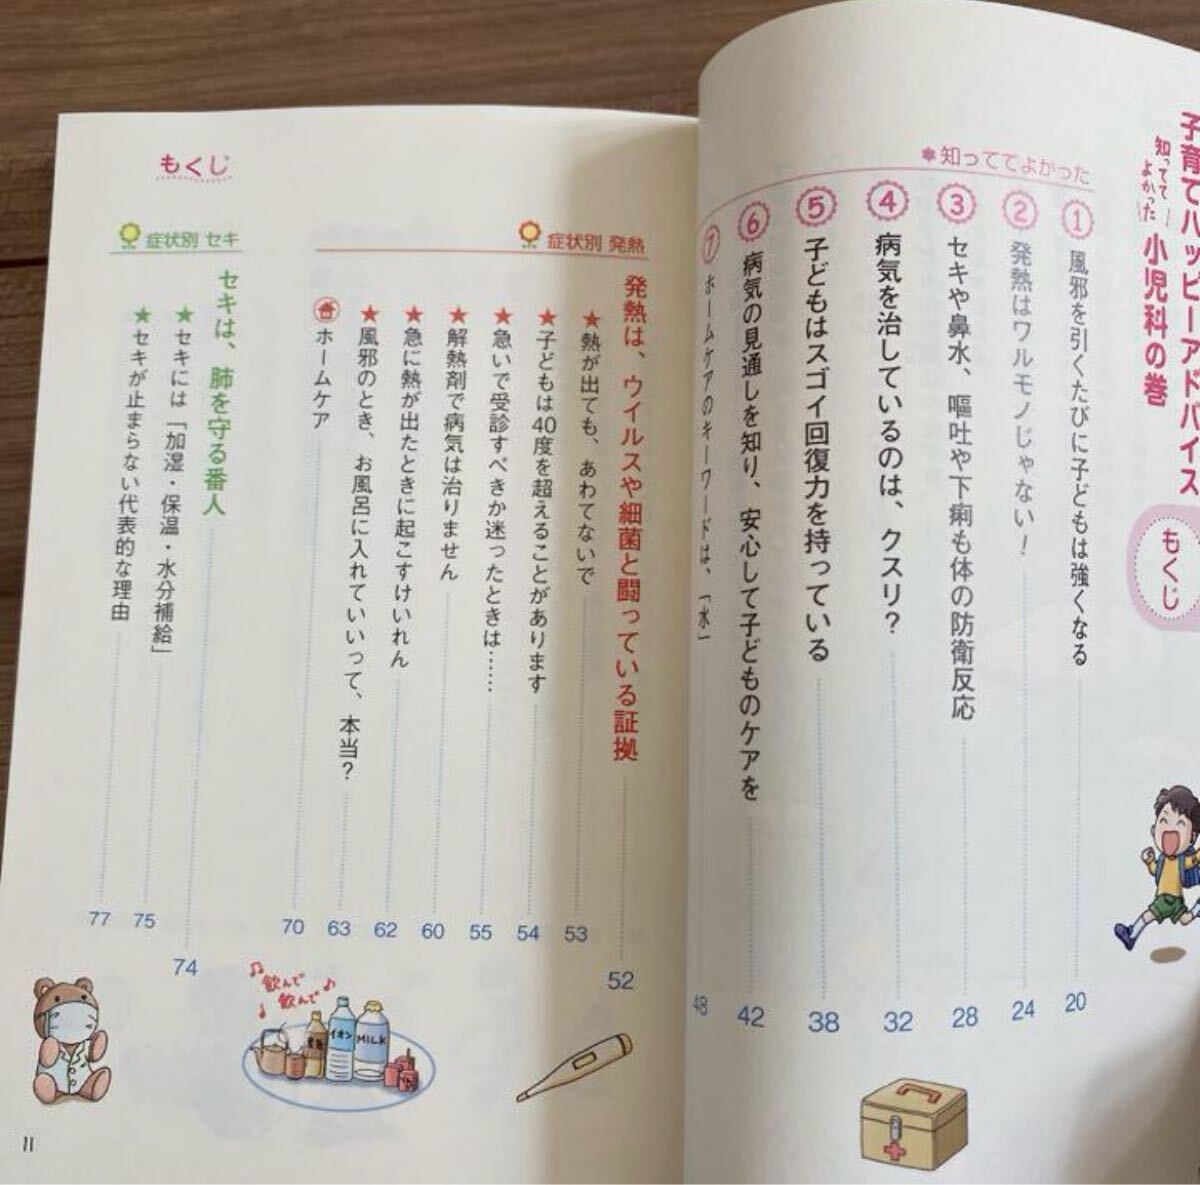 子育てハッピーアドバイス
知っててよかった
小児科の巻
もくじ
✽知っててよかった
① 風邪を引くたびに子どもは強くなる 20
② 発熱はワルモノじゃない! 24
③ セキや鼻水、嘔吐や下痢も体の防衛反応 28
④ 病気を治しているのは、クスリ? 32
⑤ 子どもはスゴイ回復力を持っている 38
⑥ 病気の見通しを知り、安心して子どものケアを 42
⑦ ホームケアのキーワードは、「水」 48
もくじ
症状別 発熱
発熱は、ウイルスや細菌と闘っている証拠 52
★熱が出ても、あわてないで 53
★子どもは40度を超えることがあります 54
★急いで受診すべきか迷ったときは…… 55
★解熱剤で病気は治りません 60
★急に熱が出たときに起こすけいれん 62
★風邪のとき、お風呂に入れていいって、本当? 63
ホームケア 70
症状別 セキ
セキは、肺を守る番人 74
★セキには「加湿・保温・水分補給」 75
★セキが止まらない代表的な理由 77
♫飲んで
♩飲んで♪
イオン
MILK
11